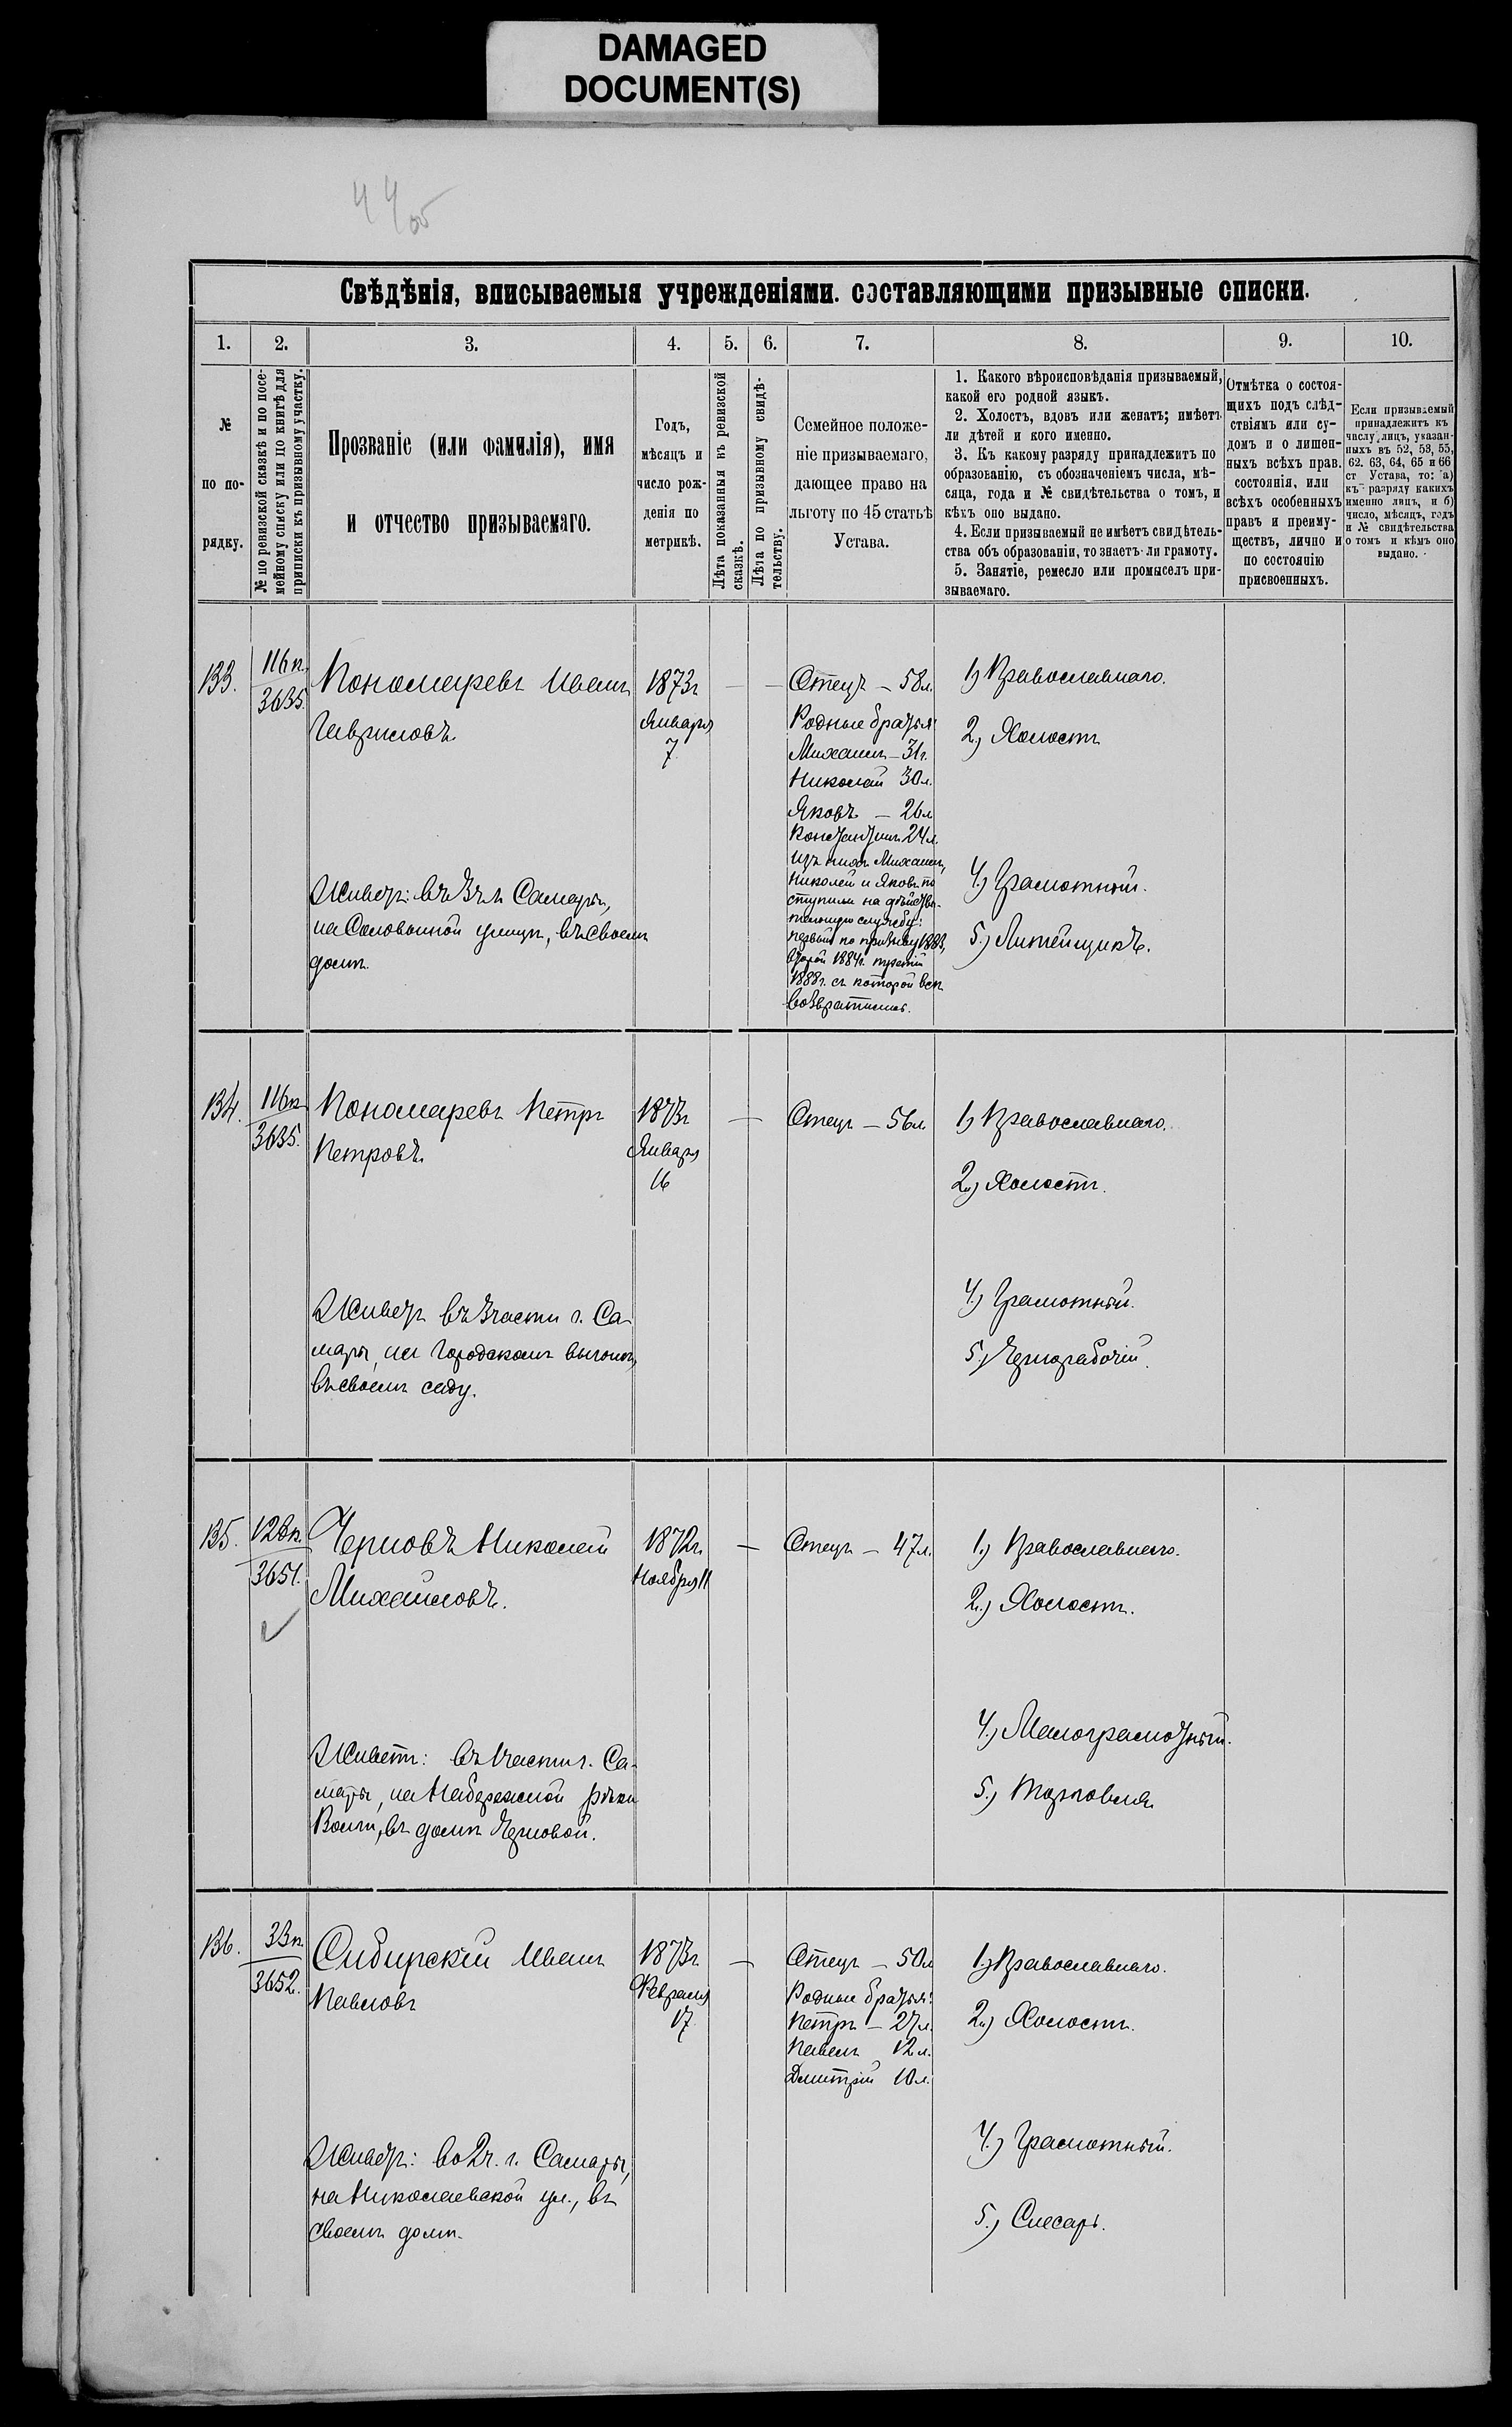 DAMAGED
DOCUMENT(S)
44 об
Свѣдѣнія, вписываемыя учрежденіями. составляющими призывные списки.
1. 2. 3. 4. 5. 6. 7. 8. 9. 10.
№
по по-
рядку.
№ по ревизской сказкѣ и по посе-
мейному списку или по книгѣ для
приписки къ призывному участку.
Прозваніе (или фамилія), имя
и отчество призываемаго.
Годъ,
мѣсяцъ и
число рож-
денія по
метрикѣ.
Лѣта показанныя въ ревизской
сказкѣ.
Лѣта по призывному свидѣ-
тельству.
Семейное положе-
ніе призываемаго,
дающее право на
льготу по 45 статьѣ
Устава.
1. Какого вѣроисповѣданія призываемый,
какой его родной языкъ.
2. Холостъ, вдовъ или женатъ; имѣетъ
ли дѣтей и кого именно.
3. Къ какому разряду принадлежитъ по
образованію, съ обозначеніемъ числа, мѣ-
сяца, года и № свидѣтельства о томъ, и
кѣмъ оно выдано.
4. Если призываемый не имѣетъ свидѣтель-
ства объ образованіи, то знаетъ-ли грамоту.
5. Занятіе, ремесло или промыселъ при-
зываемаго.
Отмѣтка о состоя-
щихъ подъ слѣд-
ствіямъ или су-
домъ и о лишен-
ныхъ всѣхъ прав.
состоянія, или
всѣхъ особенныхъ
правъ и преиму-
ществъ, лично и
по состоянію
присвоенныхъ.
Если призываемый
принадлежитъ къ
числу лицъ, указан-
ныхъ въ 52, 53, 55,
62. 63, 64, 65 и 66
ст Устава, то: а)
къ разряду какихъ
именно лицъ, и б)
число, мѣсяцъ, годъ
и № свидѣтельства
о томъ и кѣмъ оно
выдано.
133.
116п.
3635.
Пономаревъ Иванъ
Гавриловъ.
Живетъ: въ 3 ч. г. Самары,
на Соловьиной улицѣ, въ своемъ
домѣ.
1873г
Января
7
Отецъ – 58л.
Родные братья:
Михаилъ – 31г.
Николай 30л.
Яковъ – 26л
Константинъ 24л.
Изъ нихъ Михаилъ,
Николай и Яковъ по
ступили на дѣйстви-
тельную службу:
первый по призыву 1883,
второй 1884г. третій
1888г. съ которой всѣ
возвратились.
1) Православнаго.
2) Холостъ
4.) Грамотный.
5.) Литейщикъ.
134.
116п
3635.
Пономаревъ Петръ
Петровъ.
Живетъ въ 3 части г. Са-
мары, на Городскомъ выгонѣ,
въ своемъ саду.
1873г
Января
16
Отецъ – 56л
1) Православнаго.
2) Холостъ.
4.) Грамотный.
5.) Чернорабочій.
135.
128п.
3651.
Черновъ Николай
Михайловъ.
Живетъ: въ 1 части г. Са-
мары, на Набережной рѣки
Волги, въ домѣ Черновой.
1872г.
Ноября 11
Отецъ – 47л.
1.) Православнаго.
2.) Холостъ.
4.) Малограмотный.
5.) Торговля
136.
33п.
3652.
Сибирскій Иванъ
Павловъ
Живетъ: во 2 ч. г. Самары,
на Николаевской ул., въ
своемъ домѣ.
1873г
Февраля
17
Отецъ – 50л
Родные братья:
Петръ – 27л.
Павелъ 12л.
Дмитрій 10л.
1.) Православнаго.
2.) Холостъ.
4.) Грамотный.
5.) Слесарь.